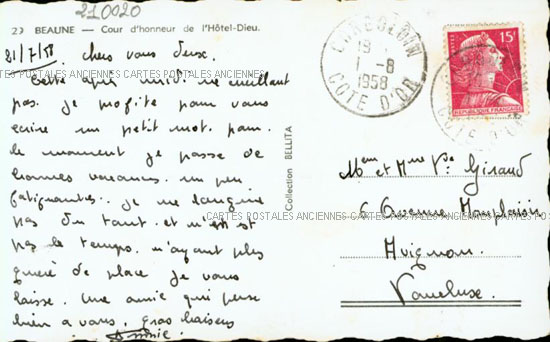 210020
29 BEAUNE — Cour d'honneur de l'Hôtel-Dieu.
31/7/58 chers vous deux.
CARTES POSTALES ANCIENNES CARTES POSTALES ANCIENNES CARTES POSTALES ANCIENNES
Cette après midi ne cueillant
pas. je profite pour vous
écrire un petit mot. pour
le moment je passe de
bonnes vacances. un peu
fatigantes. je ne languie
pas du tout. et n'est
pas le temps. n'ayant plus
guère de place je vous
laisse. une amie qui pense
bien a vous. gros baisers
Collection BELLITA
1-8
1958
COTE D'OR
15F
REPUBLIQUE FRANCAISE
COTE D'OR
Mem et Mme Ve Giraud
6 Avenue
CARTES POSTALES ANCIENNES CARTES POSTALES ANCIENNES CARTES POSTALES ANCIENNES
Avignon.
Vaucluse.